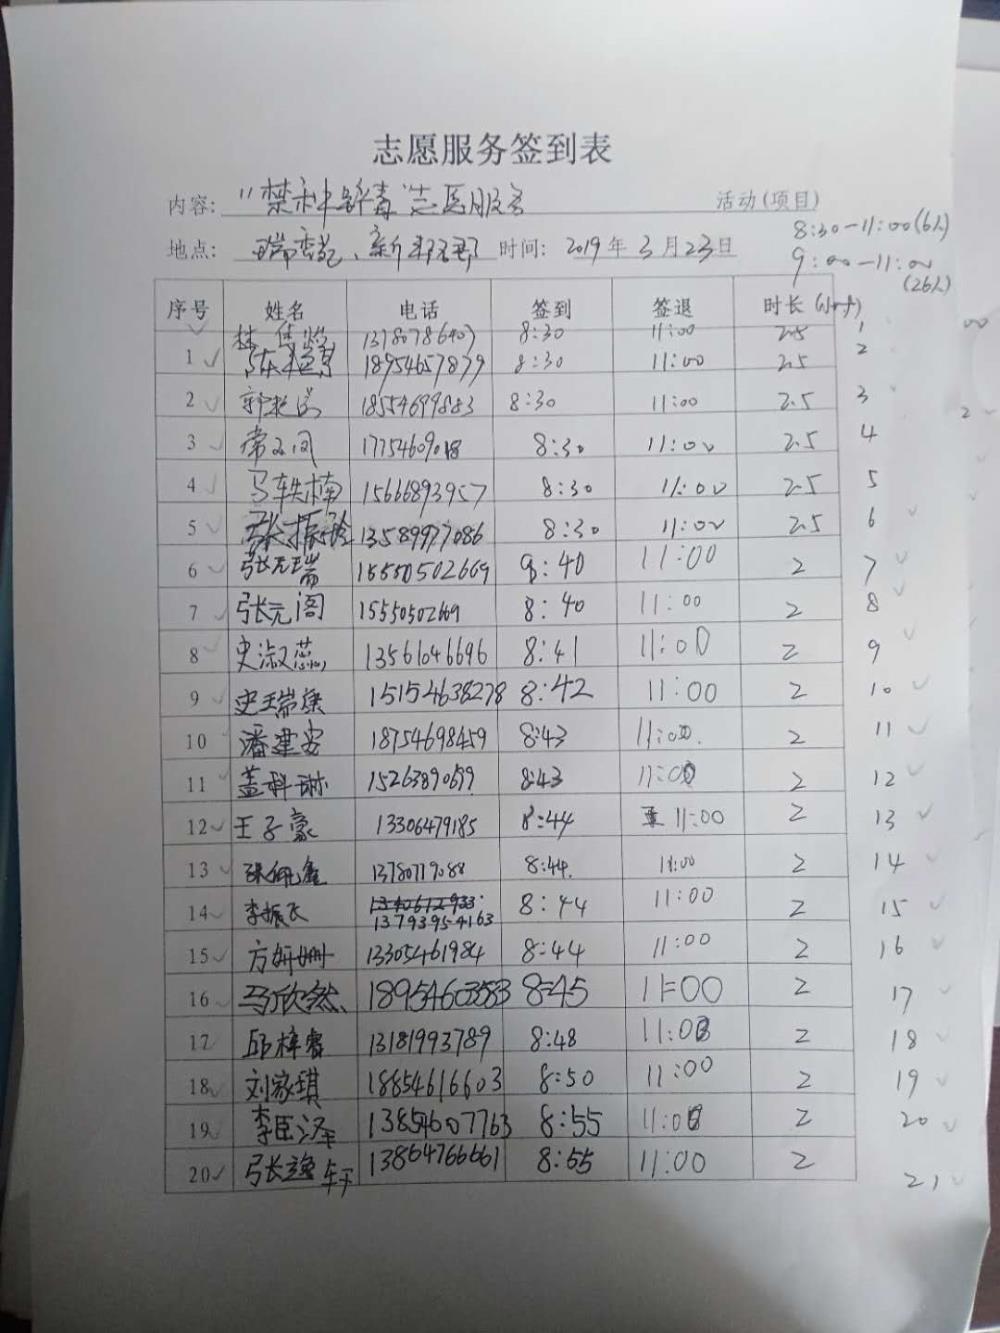 志愿服务签到表
内容: "禁种铲毒"志愿服务 活动(项目)
地点: 时间: 2019年3月23日
8:30-11:00(6人)
9:00-11:00
(26人)
序号 姓名 电话 签到 签退 时长(小时)
林 13780786407 8:30 11:00 2.5 1
1 18954657879 8:30 11:00 2.5 2
2 18554699883 8:30 11:00 2.5 3
3 常 8:30 11:00 2.5 4
4 马轶楠 15666893957 8:30 11:00 2.5 5
5 张振玲 13589977086 8:30 11:00 2.5 6
6 张元瑞 15550502669 8:40 11:00 2 7
7 张元阁 15550502669 8:40 11:00 2 8
8 史淑蕊 13561046696 8:41 11:00 2 9
9 史瑞康 15154638278 8:42 11:00 2 10
10 潘建安 18754698459 8:43 11:00 2 11
11 盖科琳 8:43 11:00 2 12
12 王子豪 13306479185 8:44 11:00 2 13
13 张佩鑫 13780719088 8:44 11:00 2 14
14 李振飞 8:44 11:00 2 15
13793954163
15 方妍姗 13305461984 8:44 11:00 2 16
16 马欣然 18954603583 8:45 11:00 2 17
17 邱梓睿 13181993789 8:48 11:00 2 18
18 刘家琪 18854616603 8:50 11:00 2 19
19 李臣泽 13854607763 8:55 11:00 2 20
20 张逸轩 13864766661 8:55 11:00 2 21